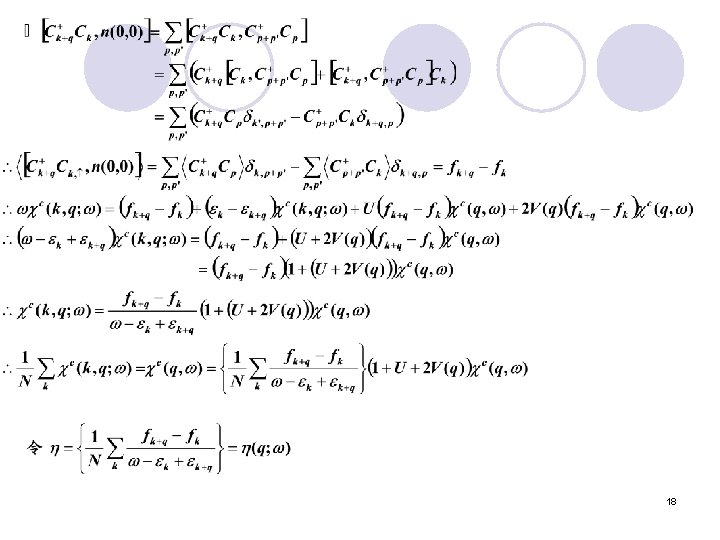 [C⁺ₖ₊qCₖ, n(0,0)] = ∑_{p,p'} [C⁺ₖ₊qCₖ, C⁺_{p+p'}C_p]
= ∑_{p,p'} (C⁺_{k+q} [C_k, C⁺_{p+p'}C_p] + [C⁺_{k+q}, C⁺_{p+p'}C_p] C_k)
= ∑_{p,p'} (C⁺_{k+q}C_p δ_{k',p+p'} − C⁺_{p+p'}C_k δ_{k+q,p})
∴ ⟨[C⁺_{k+q}C_{k,↑}, n(0,0)]⟩ = ∑_{p,p'} ⟨C⁺_{k+q}C_p⟩ δ_{k,p+p'} − ∑_{p,p'} ⟨C⁺_{p+p'}C_k⟩ δ_{k+q,p} = f_{k+q} − f_k
∴ ωχ^c(k,q;ω) = (f_{k+q} − f_k) + (ε_k − ε_{k+q}) χ^c(k,q;ω) + U(f_{k+q} − f_k) χ^c(q,ω) + 2V(q)(f_{k+q} − f_k) χ^c(q,ω)
∴ (ω − ε_k + ε_{k+q}) χ^c(k,q;ω) = (f_{k+q} − f_k) + (U + 2V(q))(f_{k+q} − f_k) χ^c(q,ω)
= (f_{k+q} − f_k)(1 + (U + 2V(q))) χ^c(q,ω)
∴ χ^c(k,q;ω) = \frac{f_{k+q} − f_k}{ω − ε_k + ε_{k+q}} (1 + (U + 2V(q))) χ^c(q,ω)
∴ \frac{1}{N} ∑_k χ^c(k,q;ω) = χ^c(q,ω) = {\frac{1}{N} ∑_k \frac{f_{k+q} − f_k}{ω − ε_k + ε_{k+q}}} (1 + U + 2V(q)) χ^c(q,ω)
令 η = {\frac{1}{N} ∑_k \frac{f_{k+q} − f_k}{ω − ε_k + ε_{k+q}}} = η(q;ω)
18